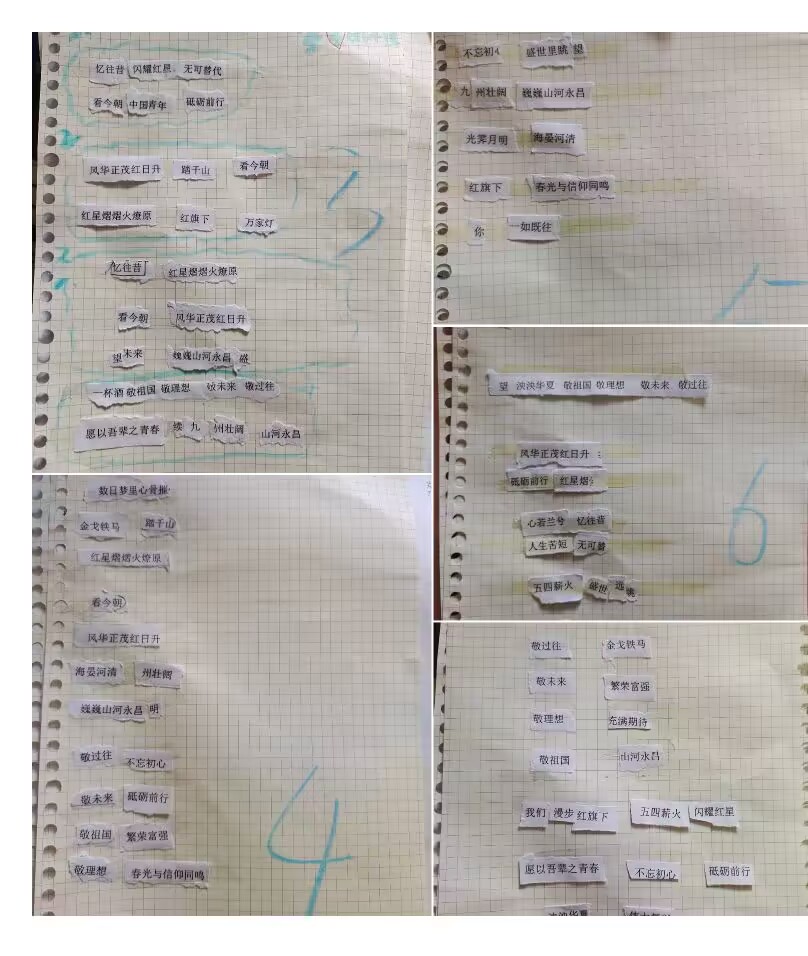 忆往昔 闪耀红星 无可替代
看今朝 中国青年 砥砺前行
风华正茂红日升 踏千山 看今朝
红星熠熠火燎原 红旗下 万家灯
3
忆往昔 红星熠熠火燎原
看今朝 风华正茂红日升
望 未来 巍巍山河永昌 盛
一杯酒 敬祖国 敬理想 敬未来 敬过往
愿以吾辈之青春 续 九 州壮阔 山河永昌
不忘初心 盛世里眺 望
九 州壮阔 巍巍山河永昌
光霁月明 海晏河清
红旗下 春光与信仰同鸣
你 一如既往
望 泱泱华夏 敬祖国 敬理想 敬未来 敬过往
风华正茂红日升
砥砺前行 红星熠
心若兰兮 忆往昔
人生苦短 无可替
五四薪火 盛世 远 眺
6
数日梦里心骨摧
金戈铁马 踏千山
红星熠熠火燎原
看今朝
风华正茂红日升
海晏河清 州壮阔
巍巍山河永昌 明
敬过往 不忘初心
敬未来 砥砺前行
敬祖国 繁荣富强
敬理想 春光与信仰同鸣
4
敬过往 金戈铁马
敬未来 繁荣富强
敬理想 充满期待
敬祖国 山河永昌
我们 漫步 红旗下 五四薪火 闪耀红星
愿以吾辈之青春 不忘初心 砥砺前行